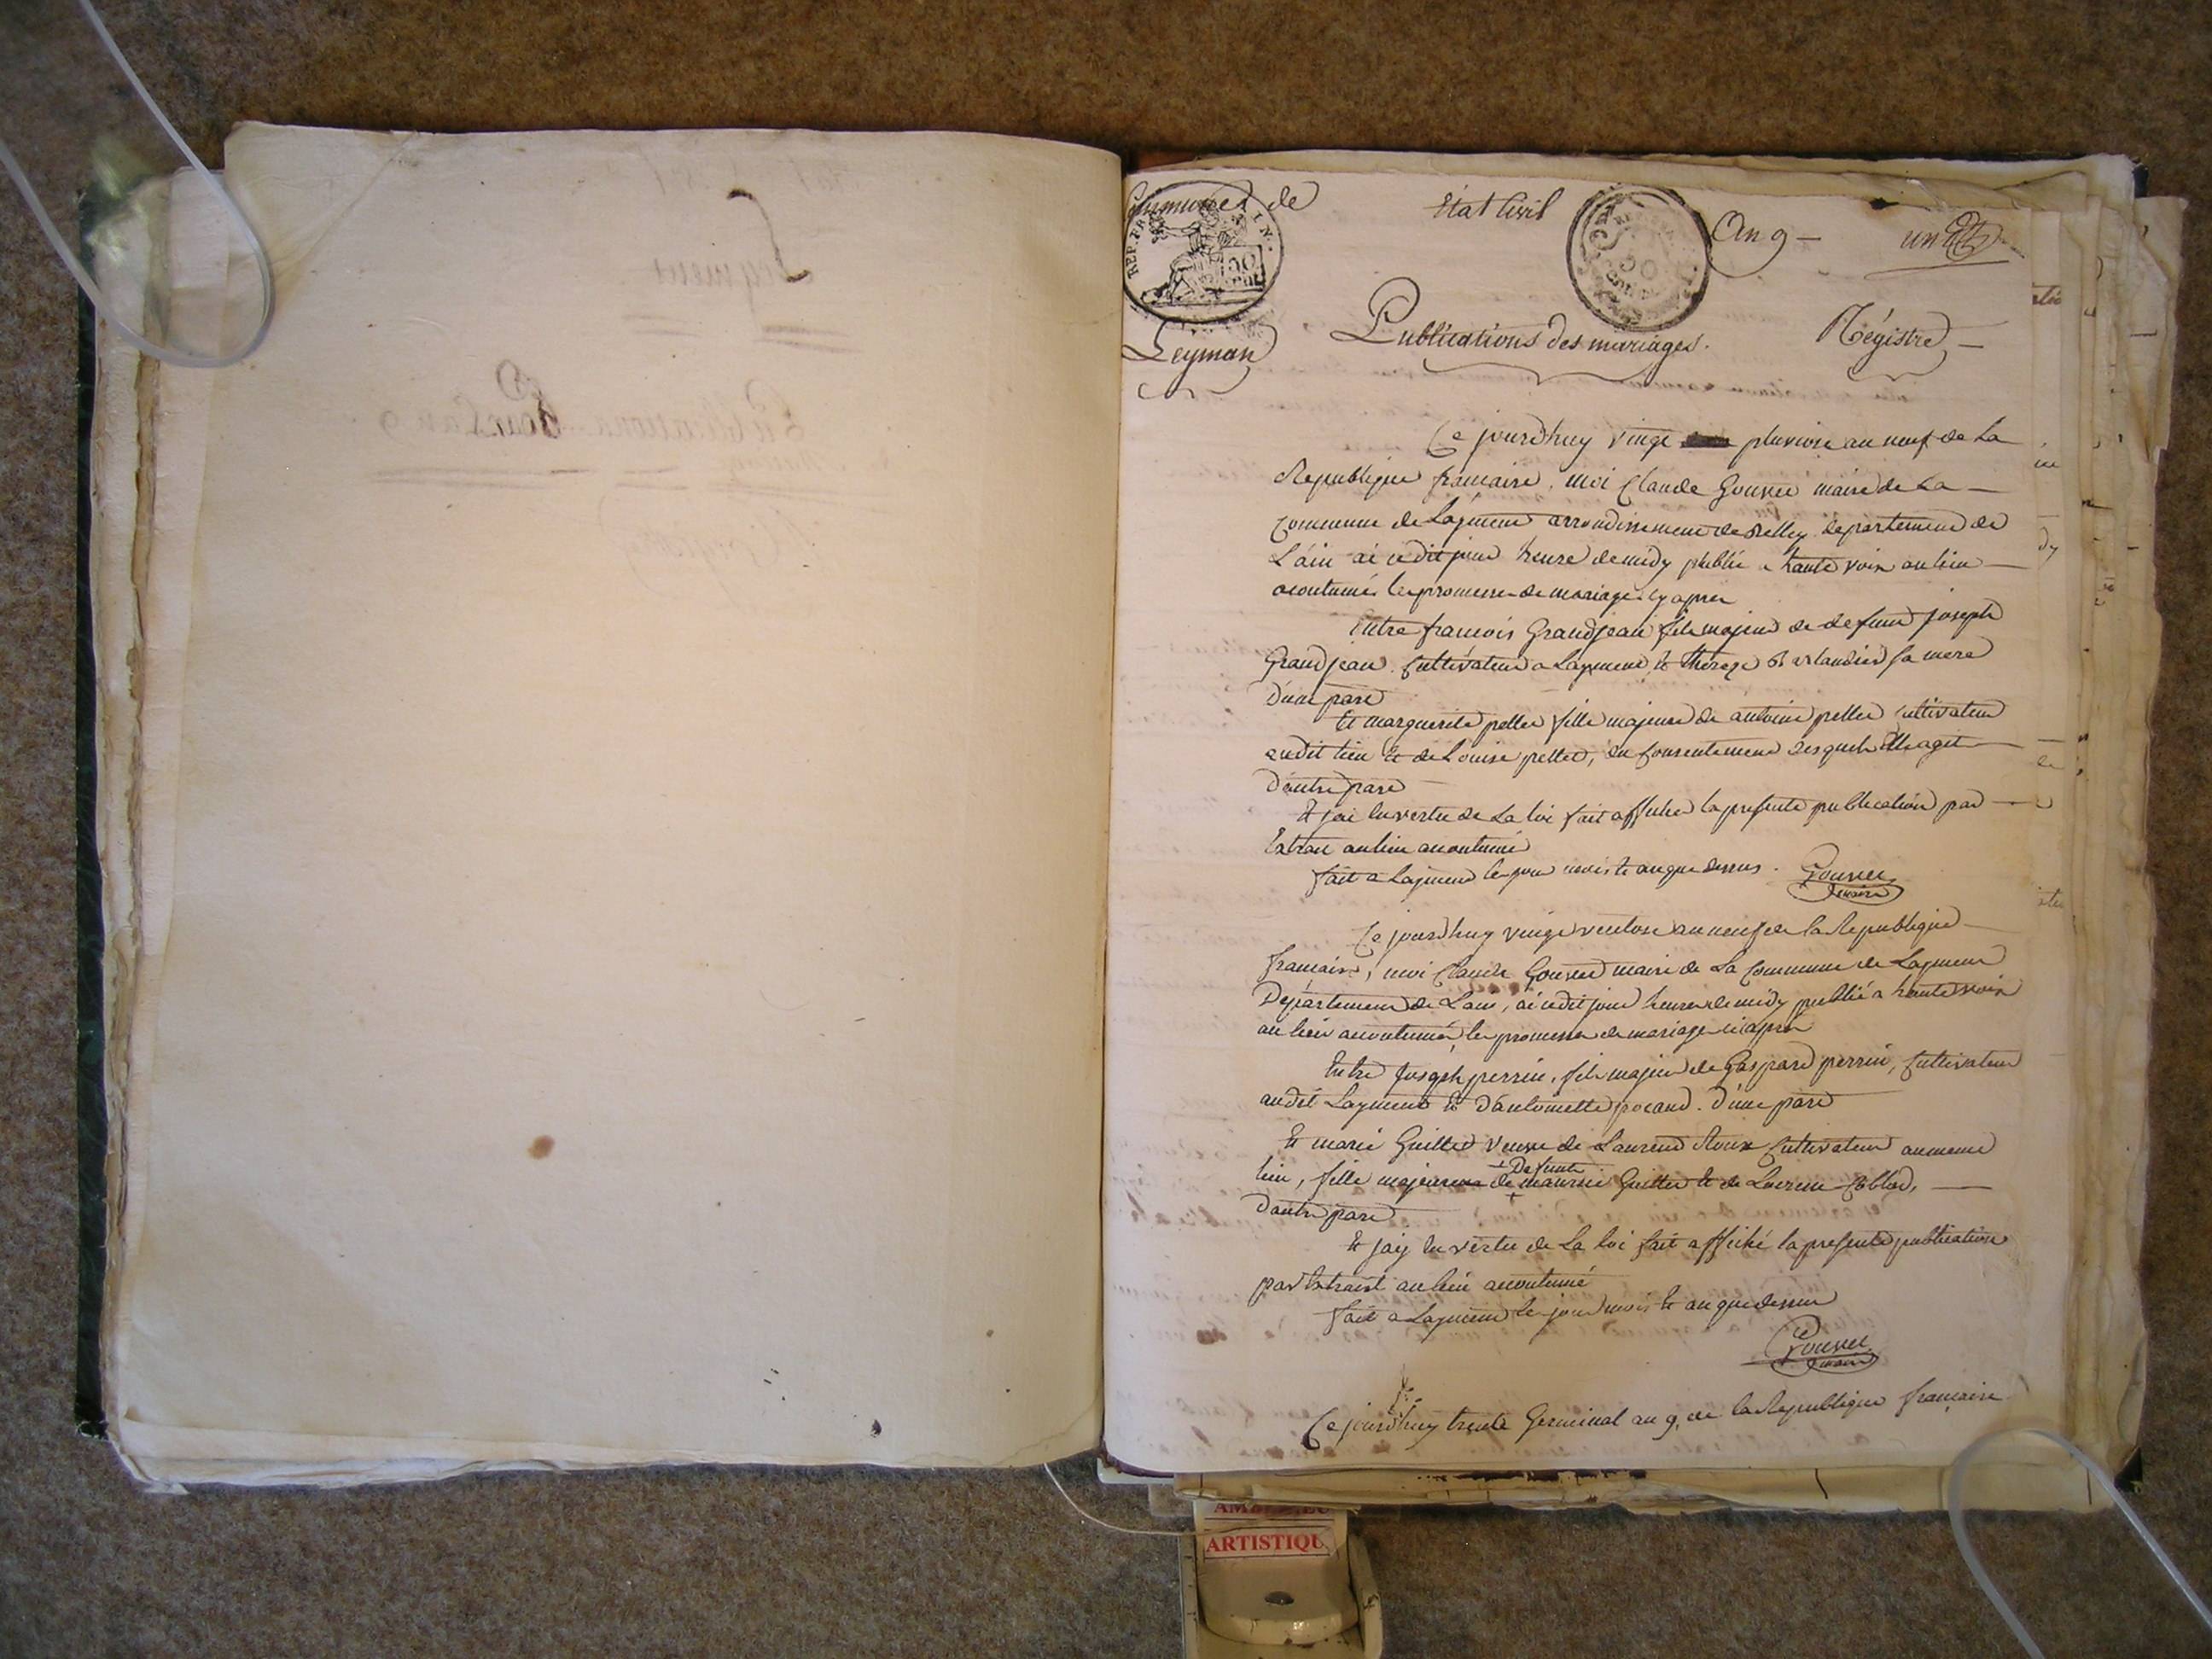 Communes de
État Civil
An 9 —
un
Leyman
Publications des mariages.
Régistre —
Ce jourdhuy vingt pluviose an neuf de La
Republique francaise, moi Claude Gouvet maire de La —
commune de Layment arrondissement de Belley departement de
L'ain ai cedit jour heure de midy publié a haute voix au lieu —
acoutumés les promesse de mariage cy apres
Entre francois Grandjean fils majeur de defunt joseph
Grandjean Cultivateur a Layment et thereze sa mere
D'une part
Et marguerite pellet fille majeure de antoine pellet Cultivateur
audit lieu et de Louise pellet, du consentement desquels Elle agit —
D'autre part
Et jai En vertu de La loi fait afficher la presente publication par —
Extrait au lieu acoutumé
fait a Layment les jour mois et an que dessus. Gouvet
maire
Ce jourdhuy vingt ventose an neuf de la Republique —
francaise, moi Claude Gouvet maire de La Commune de Layment
Departement de Lain, ai cedit jour heure de midy publié a haute voix
au lieu acoutumé, les promesse de mariage ci apres
Entre Joseph perrin, fils majeur de Gaspard perrin, Cultivateur
audit Layment et D'antoinette pocand. D'une part
Et marie Guillet veuve de Laurend Roux Cultivateur au meme
lieu, fille majeure de + Defunt maurice Guillet et de —
D'autre part
Et jay En vertu de La loi fait affiché la presente publication
par Extrait au lieu acoutumé
fait a Layment les jour mois et an que dessus
Gouvet
maire
Ce jourdhuy trente Germinal an 9, de la Republique francaise
ARTISTIQU